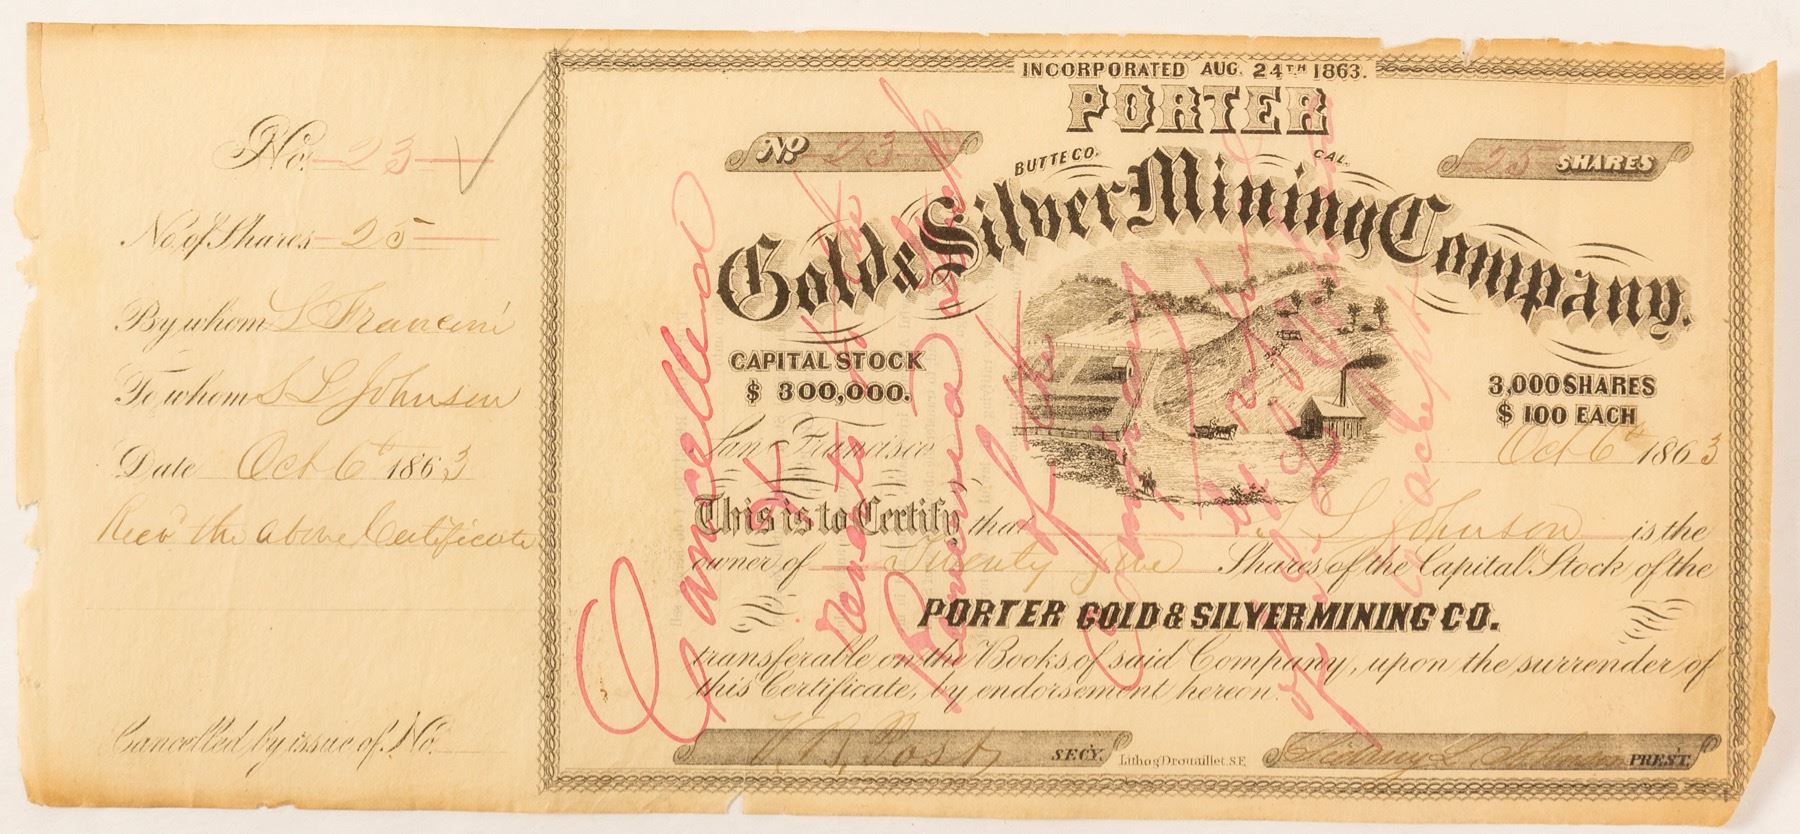 No. 23
No. of Shares 25
By whom L Francini
To whom S L Johnson
Date Oct 6th 1863
Recd the above Certificate
Cancelled by issue of No.
INCORPORATED AUG. 24TH 1863.
PORTER
No 23
BUTTE CO. CAL.
25 SHARES
Gold & Silver Mining Company.
CAPITAL STOCK
$ 300,000.
3,000 SHARES
$ 100 EACH
San Francisco Oct 6th 1863
This is to Certify that S L Johnson is the
owner of Twenty five Shares of the Capital Stock of the
PORTER GOLD & SILVER MINING CO.
transferable on the Books of said Company, upon the surrender of
this Certificate, by endorsement hereon.
V. B. Post SECY.
Lithog Drouaillet. S.F.
Sidney L. Johnson PREST.
Cancelled
of the
Company